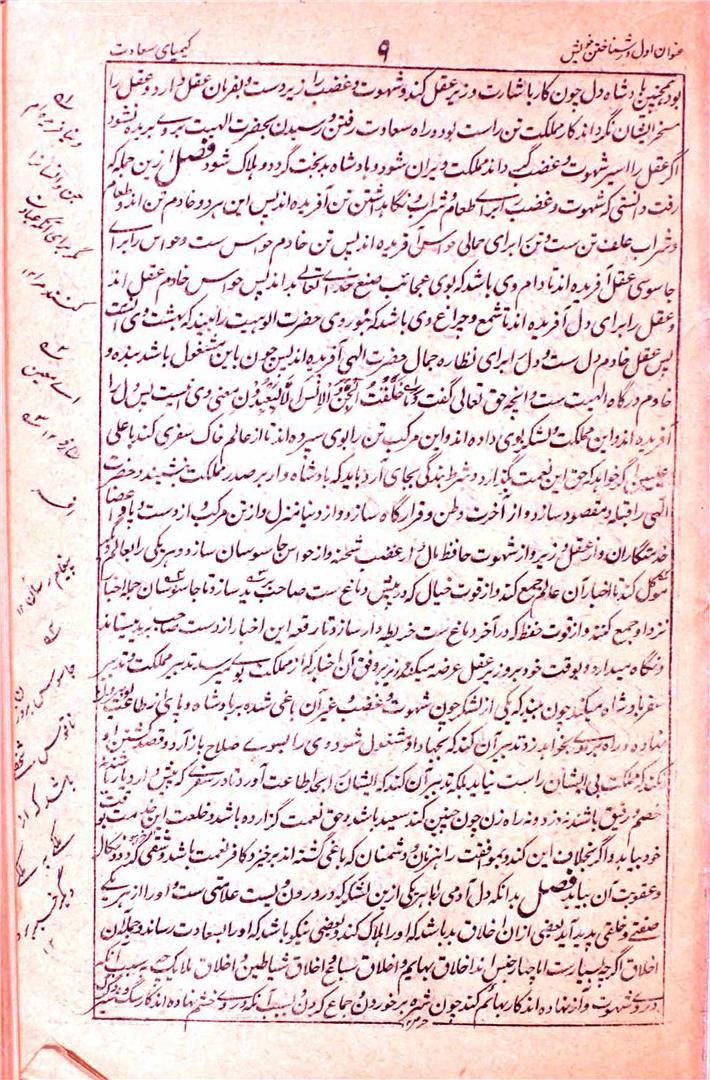 عنوان اول در شناختن خویش
۹
کیمیای سعادت
بود همچنین پادشاه دل چون کار باشارت وزیر عقل کند و شهوت و غضب را زیر دست و بفرمان عقل دارد و عقل را
مسخر ایشان نگرداند کار مملکت تن راست بود و راه سعادت رفتن و رسیدن بحضرت الهیت بروی بریده نشود
اگر عقل را اسیر شهوت و غضب گرداند مملکت ویران شود و پادشاه بدبخت گردد و هلاک شود فصل ازین جمله که
رفت دانستی که شهوت و غضب را برای طعام و شراب و نگاهداشتن تن آفریده اند پس این هر دو خادم تن اند و طعام
و شراب علف تن ست و تن را برای حمالی حواس آفریده اند پس تن خادم حواس ست و حواس را برای
جاسوسی عقل آفریده اند تا دام وی باشد که بوی عجائب صنع خدای تعالی بداند پس حواس خادم عقل اند
و عقل را برای دل آفریده اند تا شمع و چراغ وی باشد که بنور وی حضرت الوهیت را بیند که بهشت وی آنست
پس عقل خادم دل ست و دل را برای نظاره جمال حضرت الهی آفریده اند پس چون باین مشغول باشد بنده و
خادم درگاه الهیت ست و آنچه حق تعالی گفت وَمَا خَلَقْتُ الْجِنَّ وَالْإِنْسَ إِلَّا لِيَعْبُدُونِ معنی وی اینست پس دل را
آفریده اند و این مملکت و لشکر بوی داده اند و این مرکب تن را بوی سپرده اند تا از عالم خاک سفری کند باعلی
علیین اگر خواهد که حق این نعمت گزارد و شرط بندگی بجای آرد باید که پادشاه وار بر صدر مملکت بنشیند و حضرت
الهی را قبله و مقصود سازد و از آخرت وطن و قرارگاه سازد و از دنیا منزل و از تن مرکب و از دست و پا و اعضا
خدمتگاران و از عقل وزیر و از شهوت حافظ مال و از غضب شحنه و از حواس جاسوسان سازد و هر یکی را بعالمی دیگر
موکل کند تا اخبار آن عالم جمع کند و از قوت خیال که در پیش دماغ ست صاحب برید سازد تا جاسوسان جمله اخبار
نزد او جمع کنند و از قوت حفظ که در آخر دماغ ست خریطه دار سازد تا رقعه این اخبار از دست صاحب برید میستاند
و نگاه میدارد و بوقت خود بر وزیر عقل عرضه میکند و وزیر بر وفق آن اخبار که از مملکت بوی میرسد تدبیر مملکت و تدبیر
سفر پادشاه میکند چون بیند که یکی از لشکر چون شهوت و غضب و غیر آن باغی شده بر پادشاه و پای از طاعت او بیرون
نهاده و راه بروی بخواهد زد تدبیر آن کند که بجهاد او مشغول شود و وی را بسوی صلاح باز آرد و قصد کشتن او
نکند که مملکت بی ایشان راست نیاید بلکه تدبیر آن کند که ایشان را بحد طاعت آورد تا در سفری که در پیش دارد یار باشند نه
خصم و رفیق باشند نه دزد و نه راه زن چون چنین کند سعید باشد و حق نعمت گزارده باشد و خلعت این خدمت بوقت
خود بیابد و اگر بخلاف این کند و بموافقت راهزنان و دشمنان که باغی گشته اند برخیزد کافر نعمت باشد و شقی گردد و نکال
و عقوبت آن بیابد فصل بدانکه دل آدمی را با هر یکی ازین لشکر که در درون ویست علاقتی ست و او را از هر یکی
صفتی و خلقی پدید آید بعضی از ان اخلاق بد باشد که او را هلاک کند و بعضی نیکو باشد که او را بسعادت رساند و جمله آن
اخلاق اگرچه بسیارست اما چهار جنس اند اخلاق بهایم و اخلاق سباع و اخلاق شیاطین و اخلاق ملائک چه بسبب آنکه
در وی شهوت و آز نهاده اند کار بهائم کند چون شره بر خوردن و جماع کردن و بسبب آنکه در وی خشم نهاده اند کار سگ و
و نیافریده ام
جن و انس را
مگر برای آنکه عبادت
کنند مرا ۱۲
پیغام رسان ۱۲
جاسوس
باشد که از